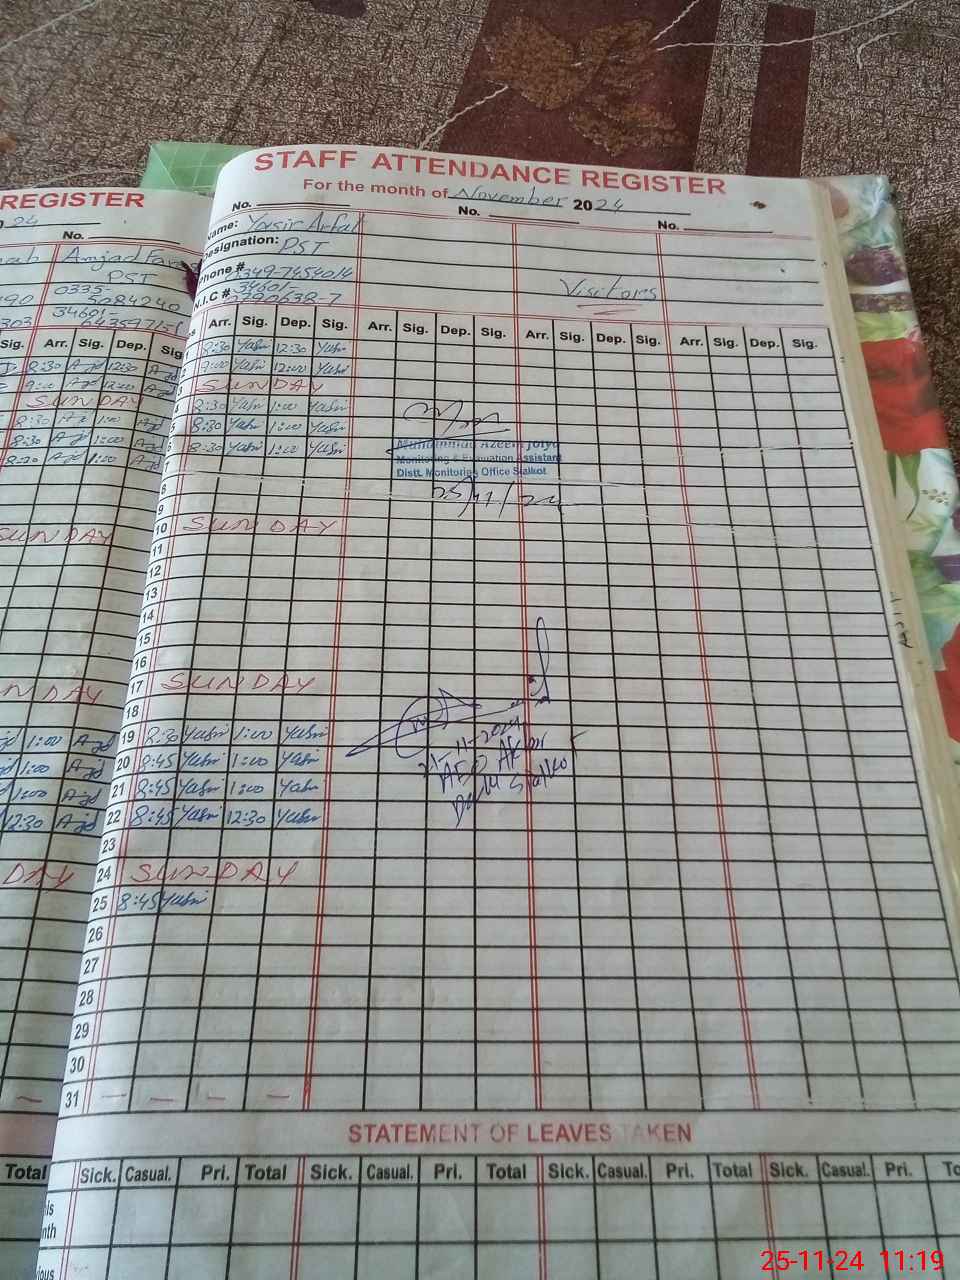 REGISTER
24
No.
Amjad
PST
0335-
5084240
34601-
Sig. Arr. Sig. Dep. Sig
8:30 12:30
9:00 12:00
SUNDAY
8:30 1:00
8:30 1:00
8:30 1:00
SUNDAY
NDAY
1:00
1:00
1:00
12:30
DAY
Total
STAFF ATTENDANCE REGISTER
For the month of November 2024
No. No. No.
Name: Yasir Arfat
Designation: PST
Phone # 0349-7454014
N.I.C # 34601-
Visitors
Arr. Sig. Dep. Sig. Arr. Sig. Dep. Sig. Arr. Sig. Dep. Sig. Arr. Sig. Dep. Sig.
1 8:30 Yasir 12:30 Yasir
2 9:00 Yasir 12:00 Yasir
3 SUNDAY
4 8:30 Yasir 1:00 Yasir
5 8:30 Yasir 1:00 Yasir
6 8:30 Yasir 1:00 Yasir
Muhammad Azeem
Monitoring & Evaluation Assistant
Distt. Monitoring Office Sialkot
7
8
25/11/24
9
10 SUNDAY
11
12
13
14
15
16
17 SUNDAY
18
19 8:30 Yasir 1:00 Yasir
20 8:45 Yasir 1:00 Yasir
21 8:45 Yasir 1:00 Yasir
22 8:45 Yasir 12:30 Yasir
21-11-2024
AEO
Sialkot
23
24 SUNDAY
25 8:45 Yasir
26
27
28
29
30
31 — — — —
STATEMENT OF LEAVES TAKEN
Sick. Casual. Pri. Total Sick. Casual. Pri. Total Sick. Casual. Pri. Total Sick. Casual. Pri.
25-11-24 11:19